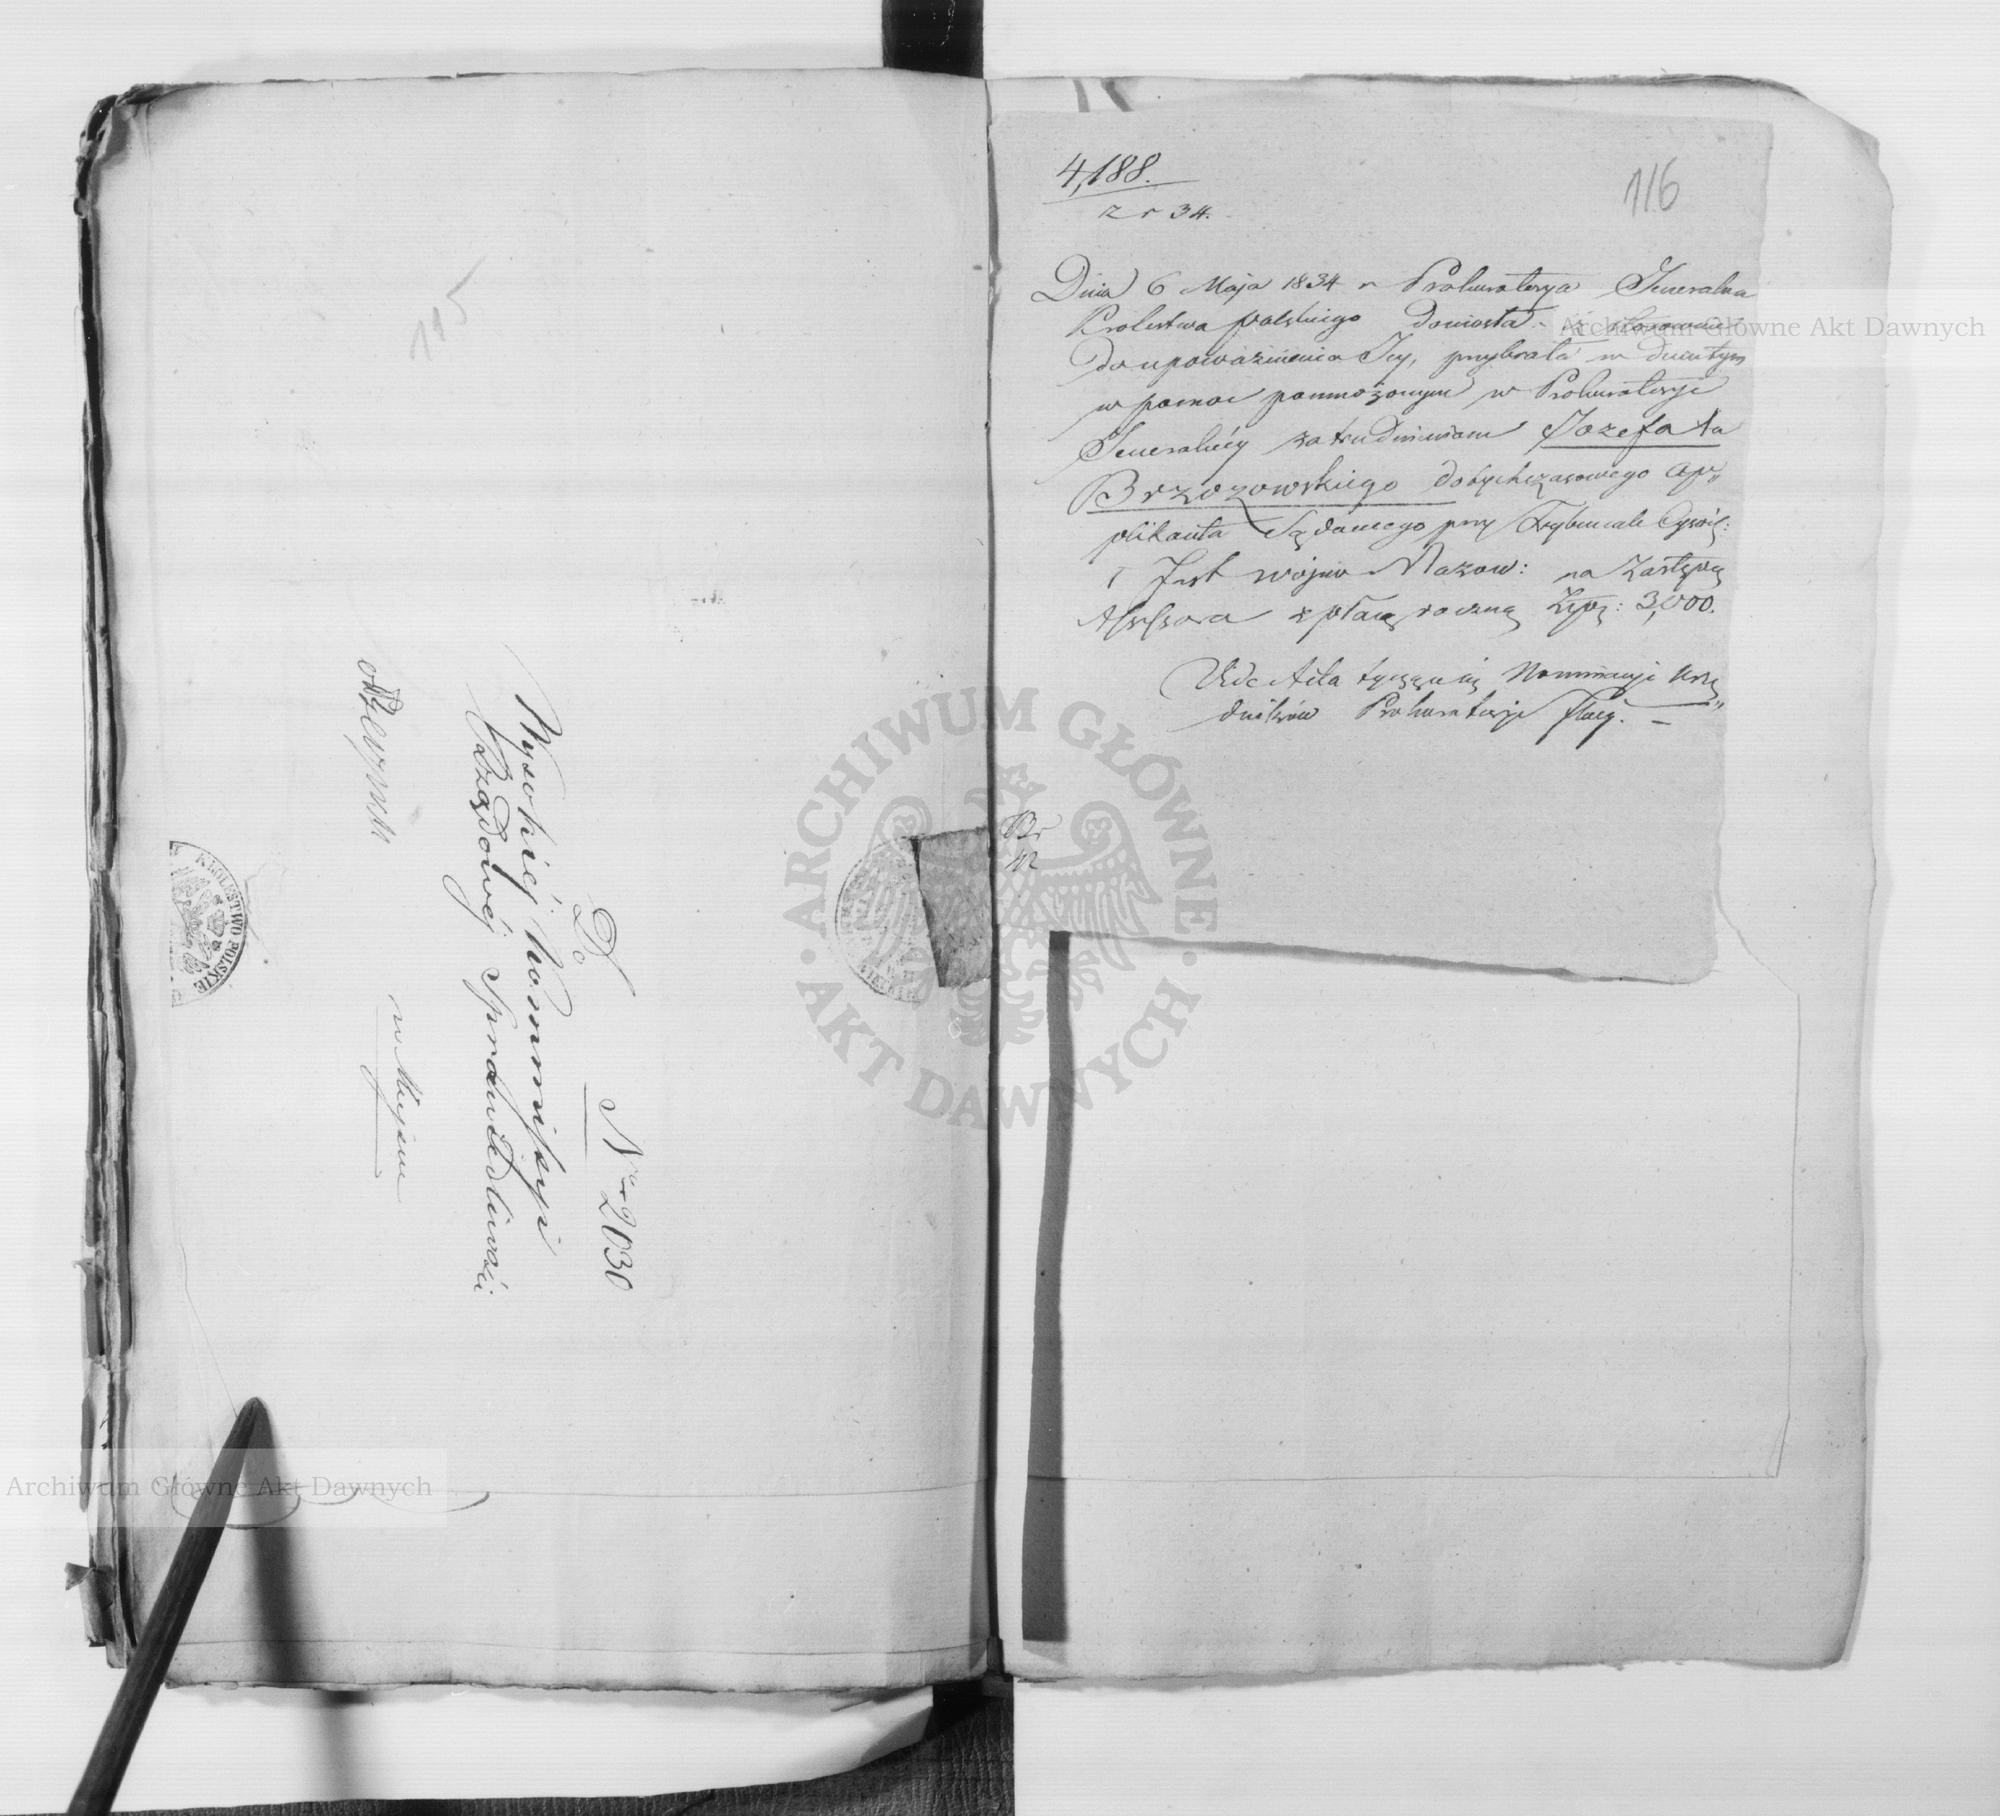 115
Do
Nro 2030
Wysokiéj Kommissyi
Rządowéj Sprawiedliwości
w Miejscu
KRÓLESTWO POLSKIE
4,188.
z r 34.
116
Dnia 6 Maja 1834 r Prokuratorya Jeneralna
Królestwa polskiego doniosła iż stosownie
do upoważnienia Jéy, przybrała w dniu tym
w pomoc pomnożonym w Prokuratoryi
Jeneralnéy zatrudnieniom Jozefata
Brzozowskiego dotychczasowego ap„
plikanta Sądowego przy Trybunale Cywil:
1 Inst wojew Mazow: na Zastępcę
Assessora z płacą roczną Złp: 3,000.
Vide Akta tyczące się Nominacyi Urzę„
dników Prokuratoryi
Br
42
ARCHIWUM GŁÓWNE
AKT DAWNYCH
Archiwum Główne Akt Dawnych
Archiwum Główne Akt Dawnych